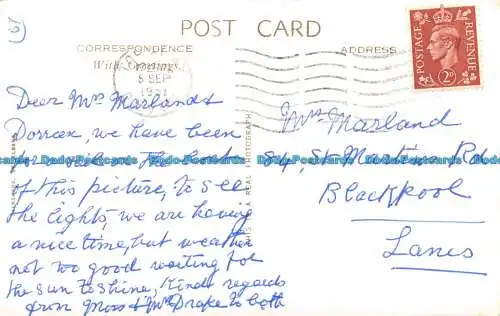 5)
POST CARD
CORRESPONDENCE
With Greetings
ADDRESS
5 SEP
1951
POSTAGE
REVENUE
2D
Dear Mrs Marland &
Dorrax, we have been
of this picture, to see
the lights, we are having
a nice time, but weather
not too good waiting for
the sun to shine, Kind regards
from Moss & Mr Drake to both
Mrs Marland
84, St Martins Rd
Blackpool
Lancs
THIS IS A REAL PHOTOGRAPH
Dody Postcards Dody Postcards Dody Postcards Dody Postcards Dody Postcards